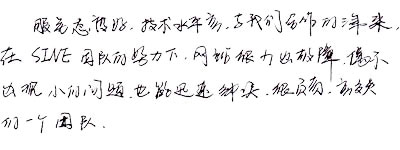 服务态度好，技术水平高，与我们合作的三年来，
在SINE团队的努力下，网站很少出故障，偶尔
出现小的问题也能迅速解决，很负责，高效
的一个团队．